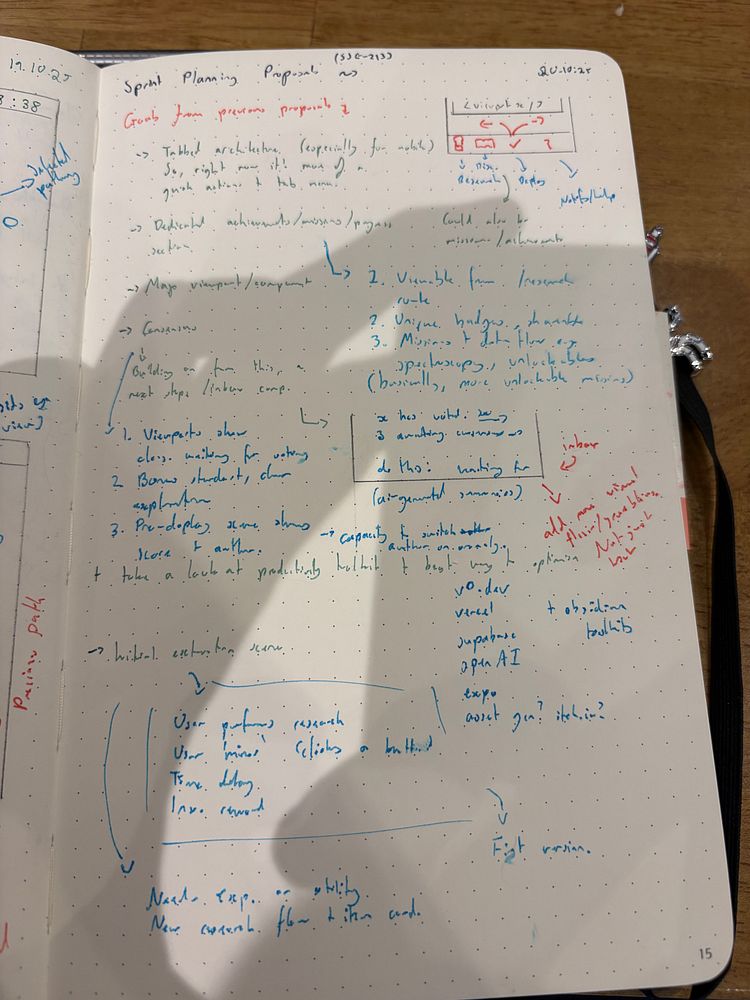 19.10.25
8:38
Sprint Planning Proposals
20.10.25
Goals from previous proposals
<viewport x/>
-> Tabbed architecture (especially for mobile)
So, right now it's more of a
quick actions + tab menu.
Research
Deploy
Notifs/help
-> Dedicated achievements/missions/progress
section
Could also be
missions/achievements
-> Map viewport/component
1. Viewable from /research
route
2. Unique badges, shareable
3. Missions + data flow e.g.
spectroscopy, unlockables
(basically, more unlockable missions)
-> Consensus
Building on from this, a
next steps/inbox comp.
1. Viewports show
class. waiting for voting
2 Bonus stardust, clear
explanation
3. Pre-deploy scene shows
score + anther.
x has voted:
3 awaiting consensus
do this: waiting for
(ai-generated summaries)
inbox
add more visual
Not just
text
-> capacity to switch
+ take a look at productivity toolkit + best way to optimise
v0.dev
vercel
supabase
openAI
expo
asset gen? itch.io?
+ obsidian
toolkits
-> Initial extraction scene
User performs research
User 'mines' (clicks a button)
Time delay
Inv. reward
First version.
Needs exp. on utility
New research flow + item card.
Previous path
15